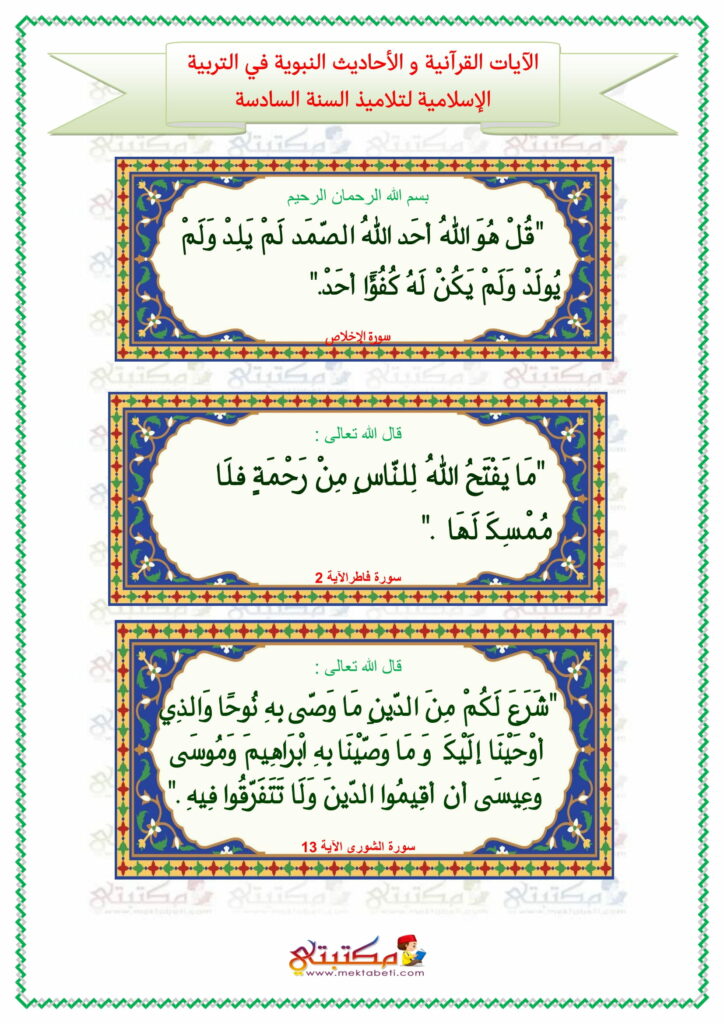 الآيات القرآنية و الأحاديث النبوية في التربية
الإسلامية لتلاميذ السنة السادسة
بسم الله الرحمان الرحيم
"قُلْ هُوَ اللهُ أحَد اللهُ الصّمَد لَمْ يَلِدْ وَلَمْ
يُولَدْ وَلَمْ يَكُنْ لَهُ كُفُؤًا أحَدْ."
سورة الإخلاص
قال الله تعالى :
"مَا يَفْتَحُ اللهُ لِلنّاسِ مِنْ رَحْمَةٍ فلَا
مُمْسِكَ لَهَا ."
سورة فاطرالآية 2
قال الله تعالى :
"شَرَعَ لَكُمْ مِنَ الدّينِ مَا وَصّى بهِ نُوحًا وَالذِي
أوْحَيْنَا إلَيْكَ وَ مَا وَصّيْنَا بهِ ابْرَاهِيمَ وَمُوسَى
وَعِيسَى أن أقِيمُوا الدّينَ وَلَا تَتَفَرّقُوا فِيهِ ."
سورة الشورى الآية 13
مكتبتي
www.mektabeti.com